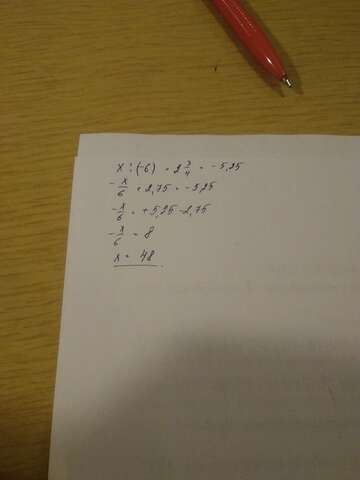 x : (-6) + 2 3/4 = -5,25
-x/6 + 2,75 = -5,25
-x/6 = +5,25-2,75
-x/6 = 8
x = 48